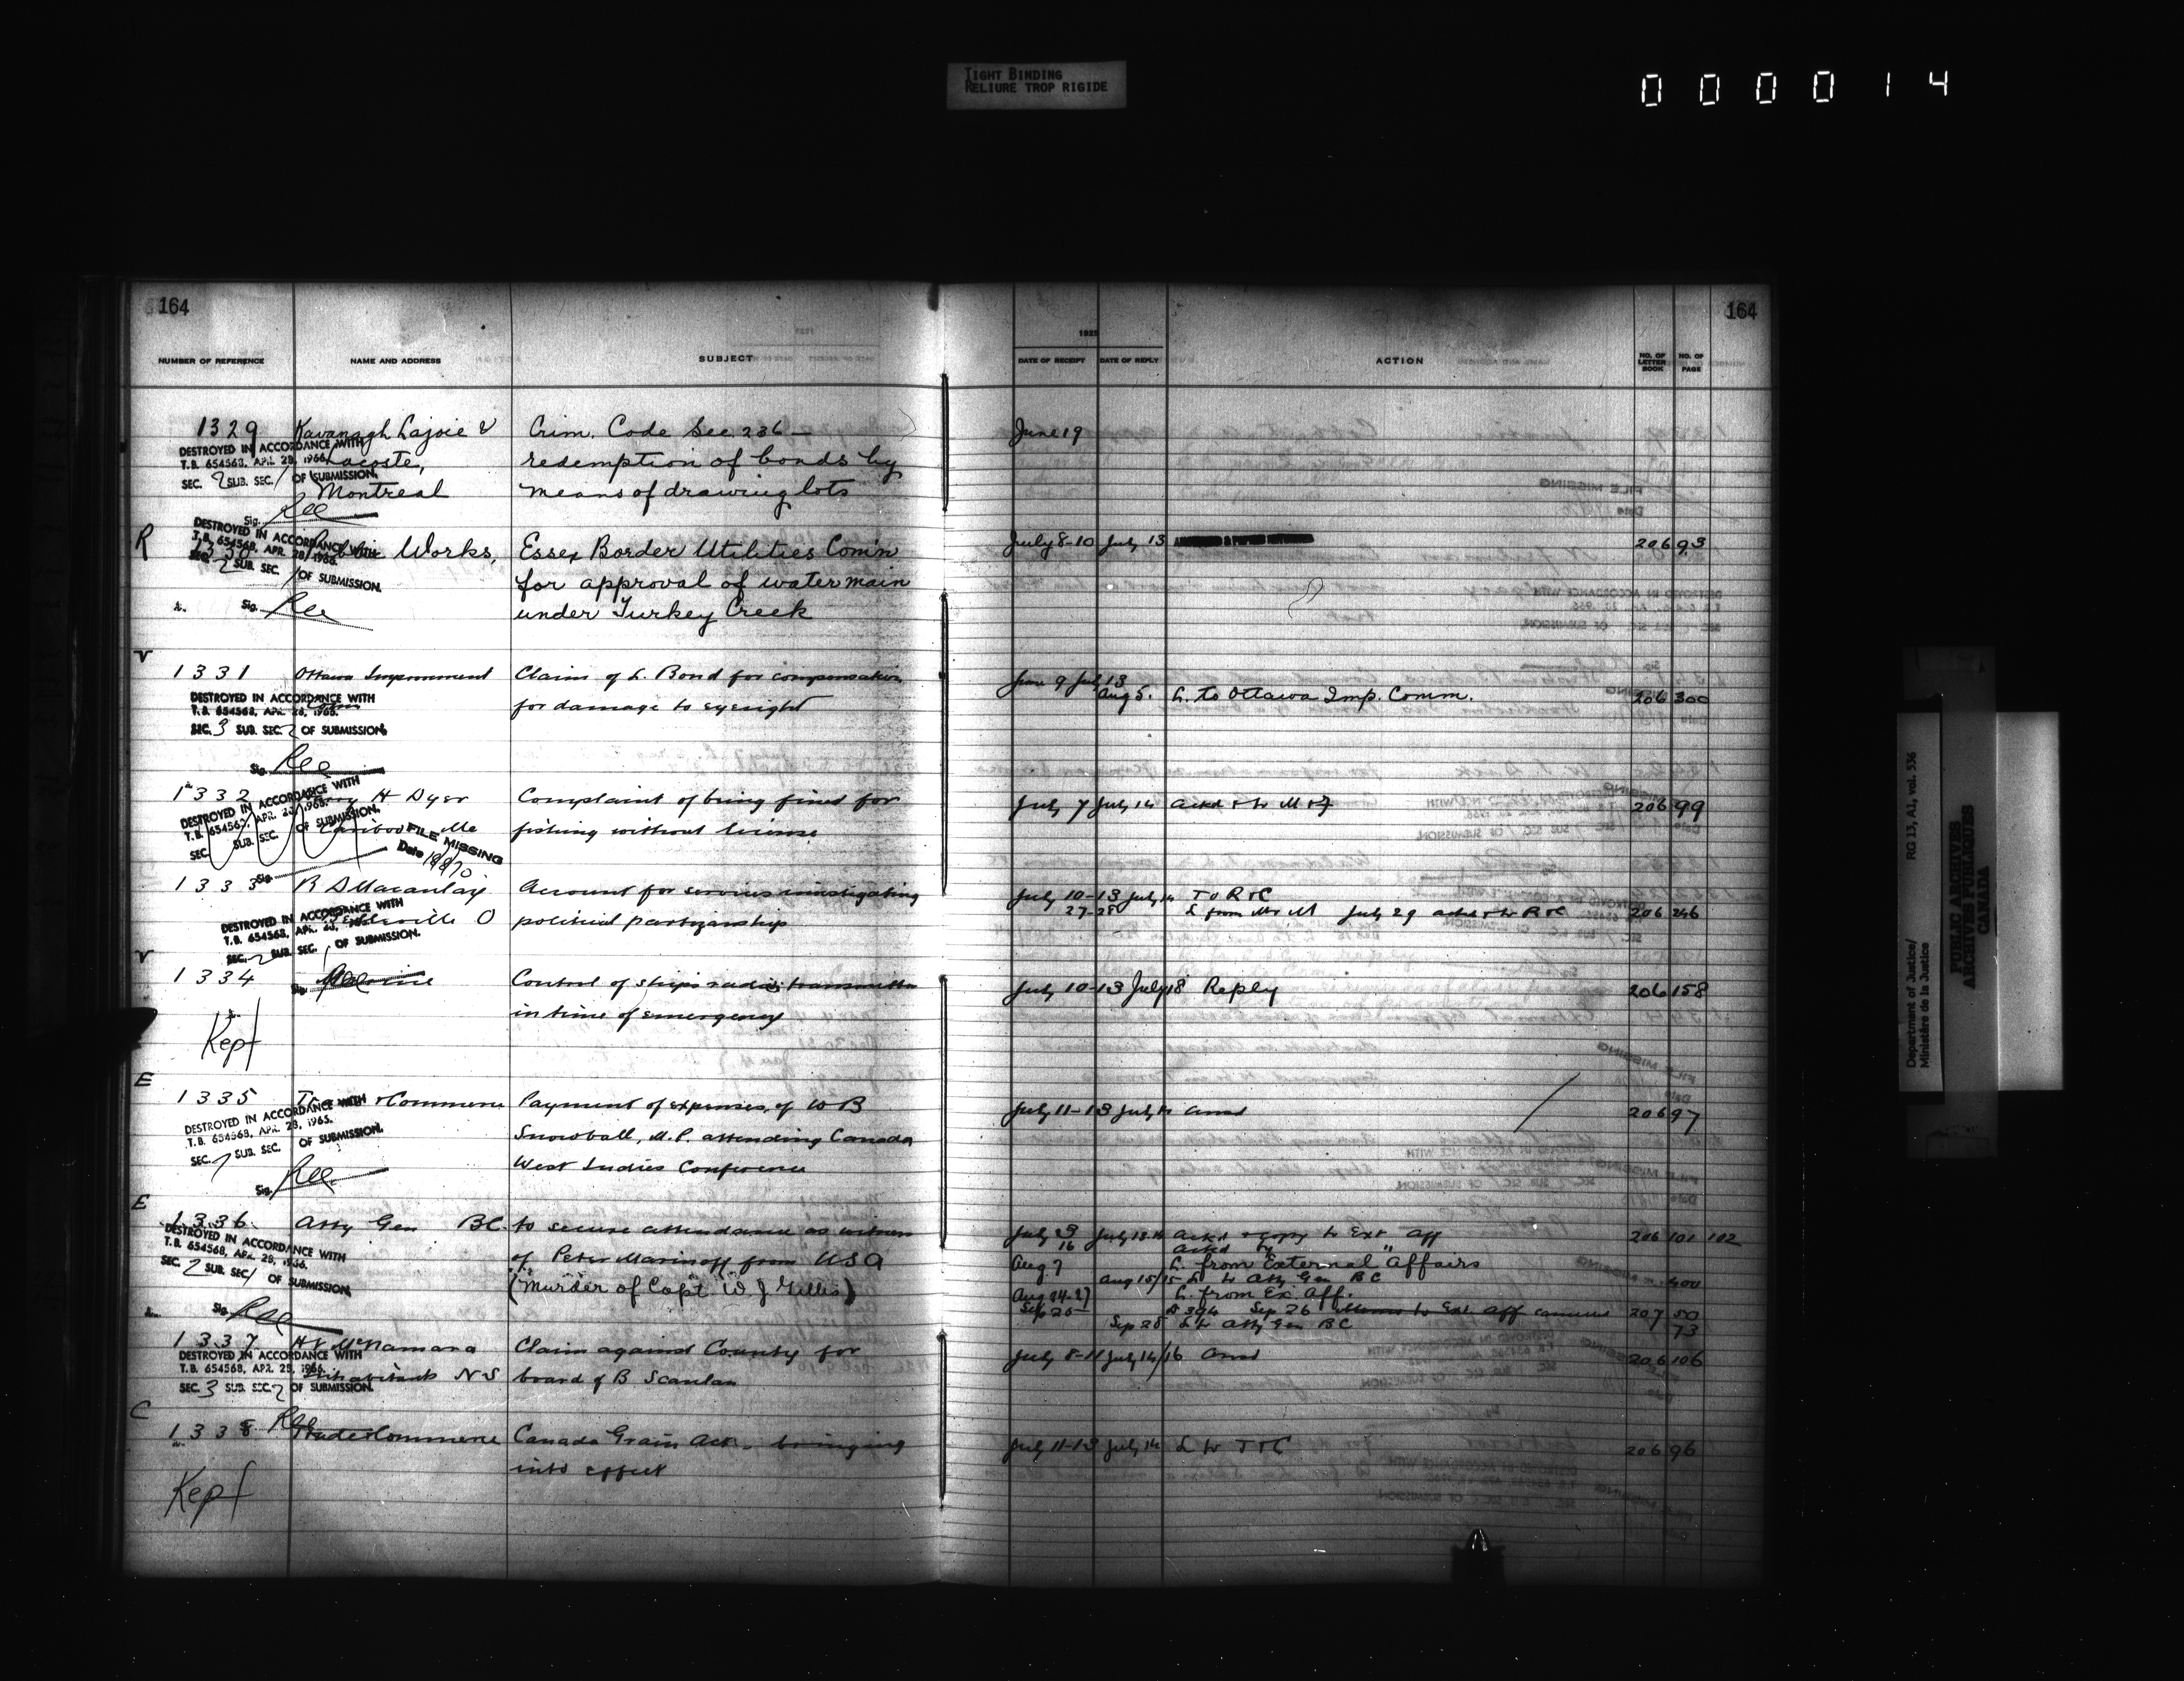 TIGHT BINDING
RELIURE TROP RIGIDE
0 0 0 0 1 4
164
164
NUMBER OF REFERENCE NAME AND ADDRESS SUBJECT
DATE OF RECEIPT DATE OF REPLY ACTION NO. OF LETTER BOOK NO. OF PAGE
1329 Kavanagh Lajoie & Crim. Code Sec. 236 — June 19
DESTROYED IN ACCORDANCE WITH
T.B. 654568, APR. 28, 1966. Lacoste, redemption of bonds by
SEC. 2 SUB. SEC. 1 OF SUBMISSION.
Montreal means of drawing lots
Sig.
R Public Works, Essex Border Utilities Com'n July 8-10 July 13 206 93
DESTROYED IN ACCORDANCE WITH
T.B. 654568, APR. 28, 1966.
SEC. 2 SUB. SEC. 1 OF SUBMISSION.
for approval of water main
Sig. under Turkey Creek
1331 Ottawa Improvement Claim of L. Bond for compensation June 9 July 13
DESTROYED IN ACCORDANCE WITH
T.B. 654568, APR. 28, 1966. for damage to eyesight Aug 5. L. to Ottawa Imp. Comm. 206 300
SEC. 3 SUB. SEC. 2 OF SUBMISSION.
Sig.
1332 H Dyer Complaint of being fined for July 7 July 14 Ackd & to M & F 206 99
DESTROYED IN ACCORDANCE WITH
T.B. 654568, APR. 28, 1966.
SEC. SUB. SEC. OF SUBMISSION.
Caribou Me fishing without license
FILE MISSING
Date
Sig.
1333 R D Macaulay Account for services investigating July 10-13 July 14 To R & C
ville O political partizanship 27-28 L from Mr M July 29 ackd & to R & C 206 246
DESTROYED IN ACCORDANCE WITH
T.B. 654568, APR. 28, 1966.
SEC. 2 SUB. SEC. 1 OF SUBMISSION.
Sig.
1334 Marine Control of ships radio transmitters July 10-13 July 18 Reply 206 158
in time of emergency
Kept
E
1335 Trade & Commerce Payment of expenses of W B July 11-13 July 14 Ansd 206 97
DESTROYED IN ACCORDANCE WITH
T.B. 654568, APR. 28, 1966.
SEC. SUB. SEC. OF SUBMISSION.
Snowball, M.P. attending Canada
West Indies Conference
Sig.
E
1336 Atty Gen BC. to secure attendance as witness July 13 July 13-14 Ackd & copy to Ext Aff 206 101 102
DESTROYED IN ACCORDANCE WITH
T.B. 654568, APR. 28, 1966.
SEC. 2 SUB. SEC. 1 OF SUBMISSION.
16 Ackd to "
of Peter Marinoff from USA Aug. 7 L. from External Affairs
Aug 15/15 L to Atty Gen BC 400
(Murder of Capt. W J Gillis) Aug 24-27 L. from Ex. Aff.
Sep 26 Sep 26 to Ext Aff 207 50
Sig. Sep 28 L to Atty Gen BC 73
1337 McNamara Claim against County for July 8-11 July 14/16 Ansd 206 106
DESTROYED IN ACCORDANCE WITH
T.B. 654568, APR. 28, 1966.
SEC. 3 SUB. SEC. 2 OF SUBMISSION.
NS board of B Scanlan
C
1338 Trade & Commerce Canada Grain Act - bringing July 11-13 July 14 L to T & C 206 96
into effect
Kept
Department of Justice/
Ministère de la Justice
RG 13, A1, vol. 536
PUBLIC ARCHIVES
ARCHIVES PUBLIQUES
CANADA